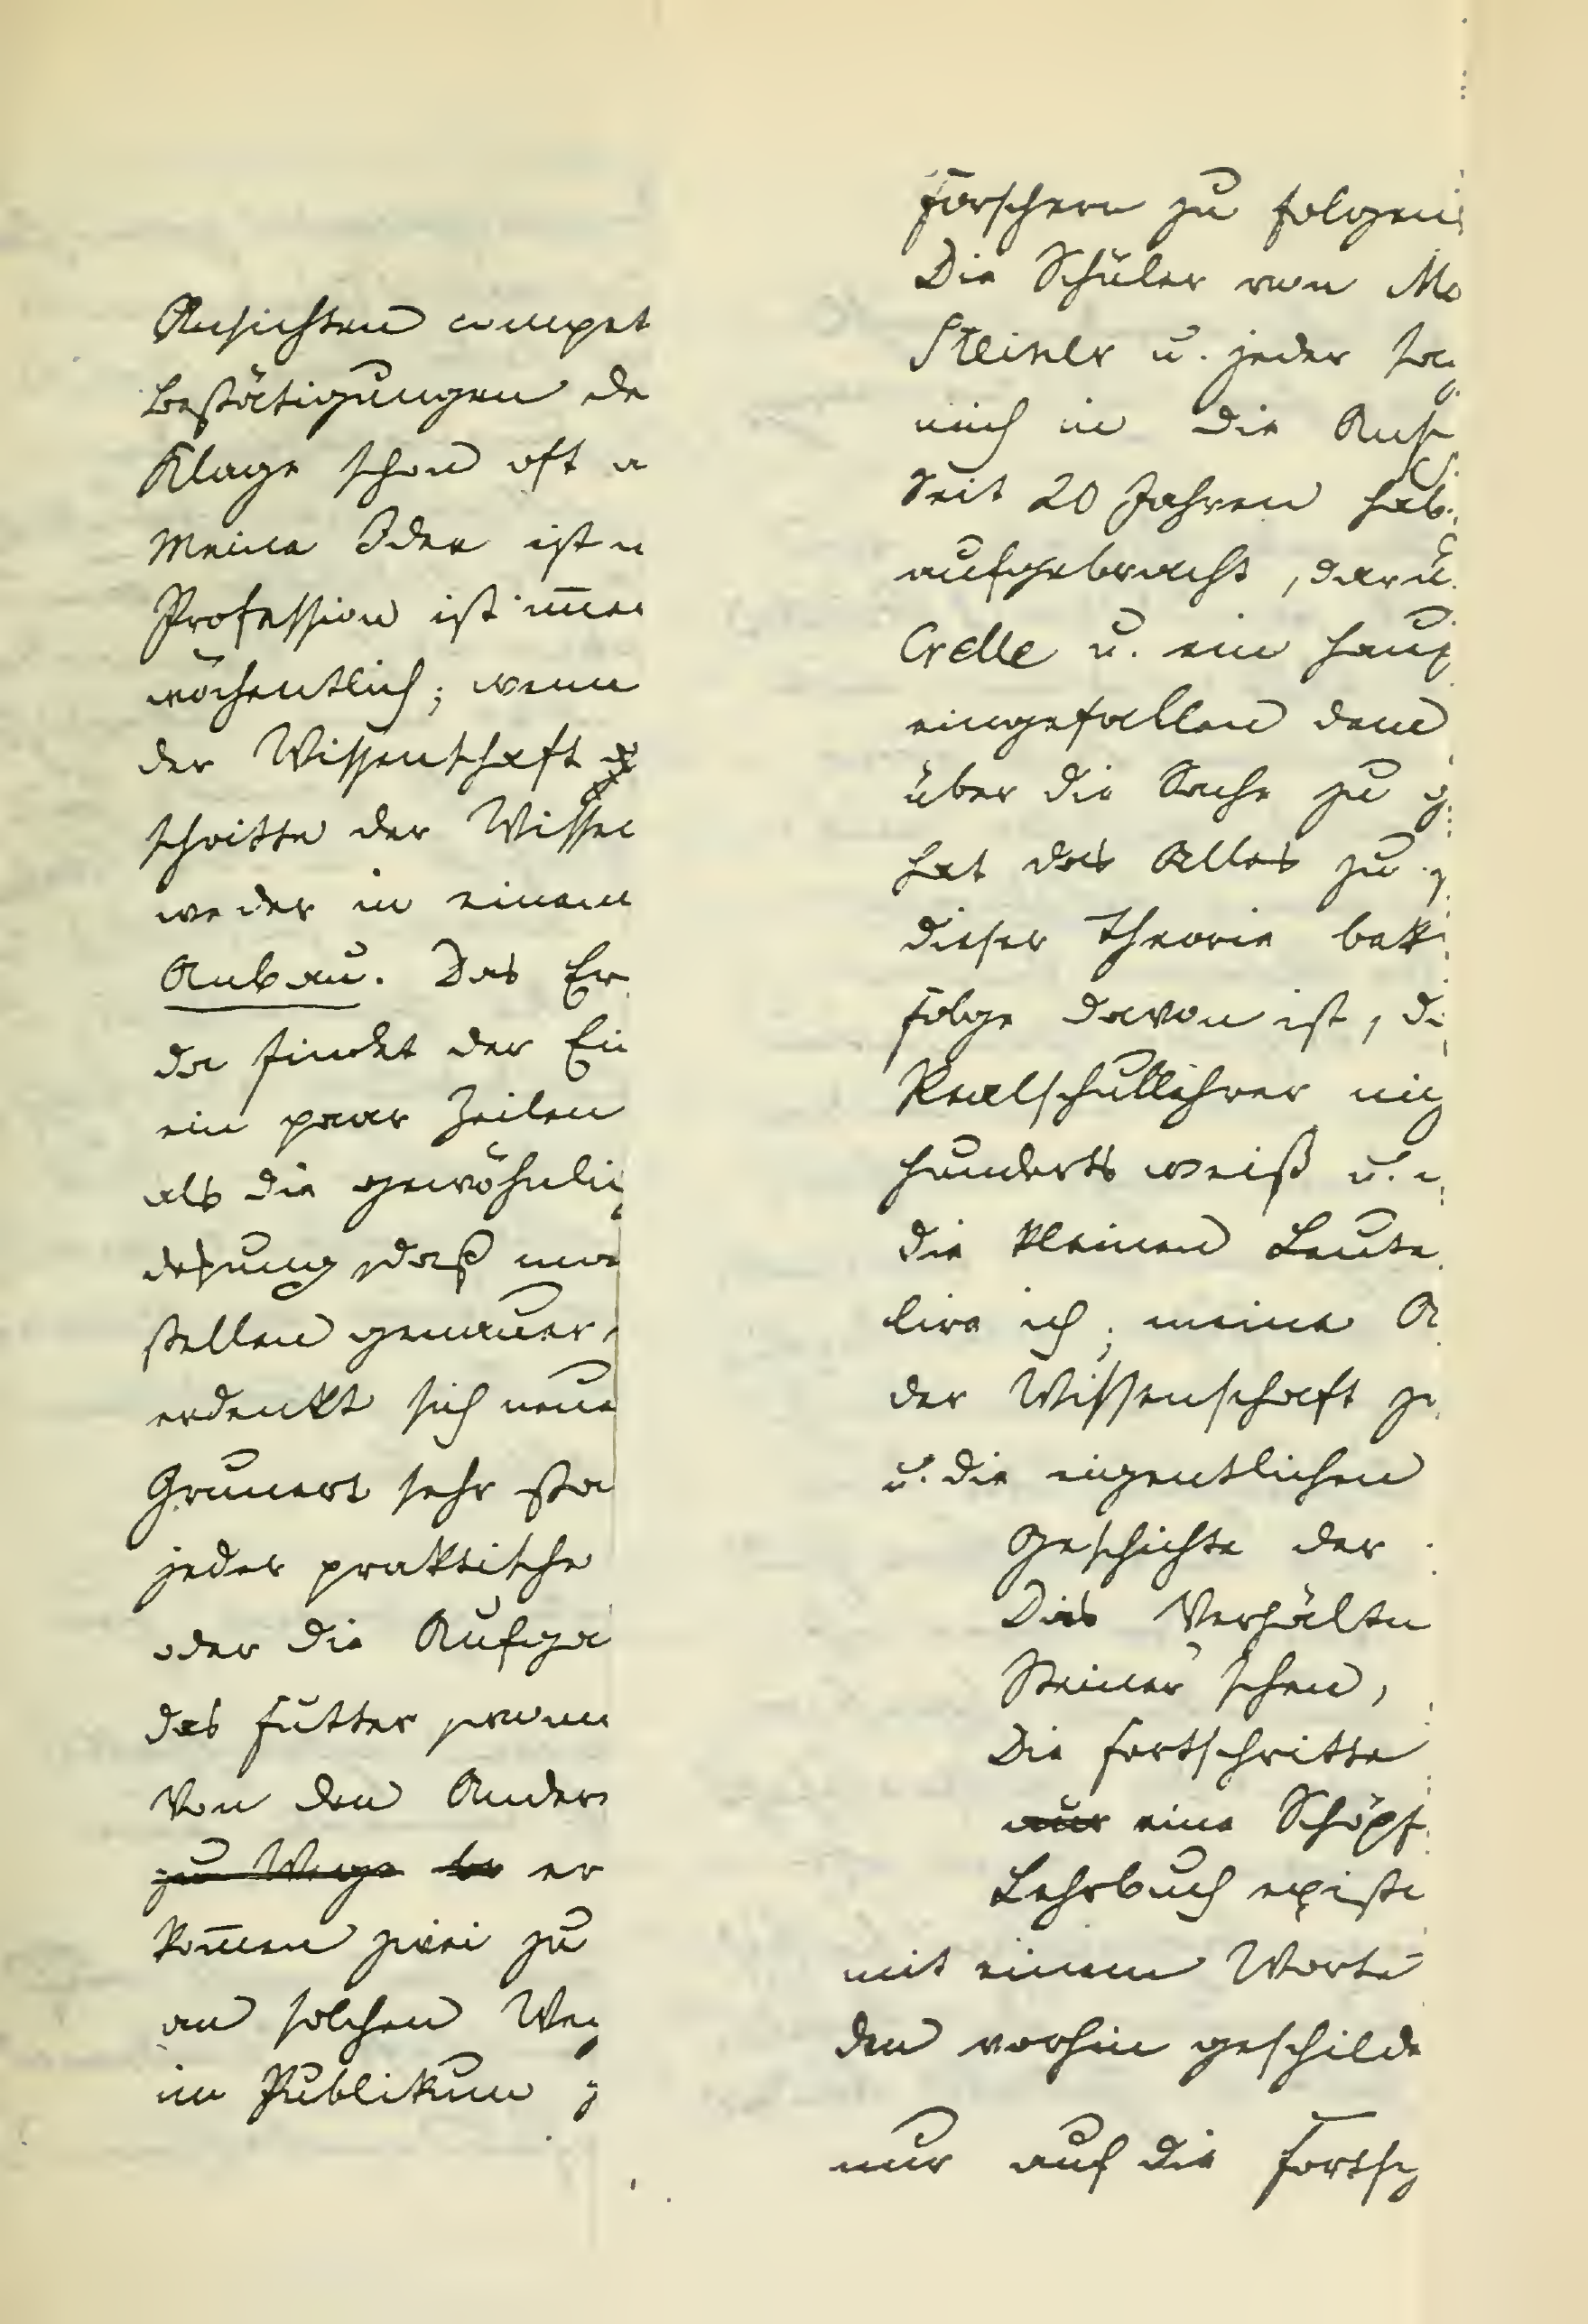 Ansichten compet
Bestätigungen de
Klage schon oft a
Meine Idee ist n
Profession ist im̅er
wöchentlich; wenn
der Wissenschaft
schritte der Wissen
weder in einem
Anbau. Das Er
da findet der Ein
ein paar Zeilen
als die gewöhnlic
dehung, daß ma
stellen genauer,
erdenkt sich neue
Grunert sehr sta
jeder praktische
oder die Aufga
das Futter
Von den Ander
zu Wege be er
kom̅en zwei zu
an solchen Weg
im Publikum
Forschern zu folgen
Die Schüler von Mö
Steiner u. jeder sag
mich in die Ansch
Seit 20 Jahren hab
aufgebracht, darü
Crelle u. ein haup
eingefallen denn
über die Sache zu g
hat das Alles zu
dieser Theorie bek
Folge davon ist, di
Realschullehrer nic
hunderts weiß u.
die kleinen Leute
lire ich; meine A
der Wissenschaft
u. die eigentlichen
Geschichte der
Das Verhältn
Steiner'schen,
Die Fortschritte
nur eine Schöpf
Lehrbuch existi
mit einem Worte
den vorhin geschilde
nur auf die Fortsch